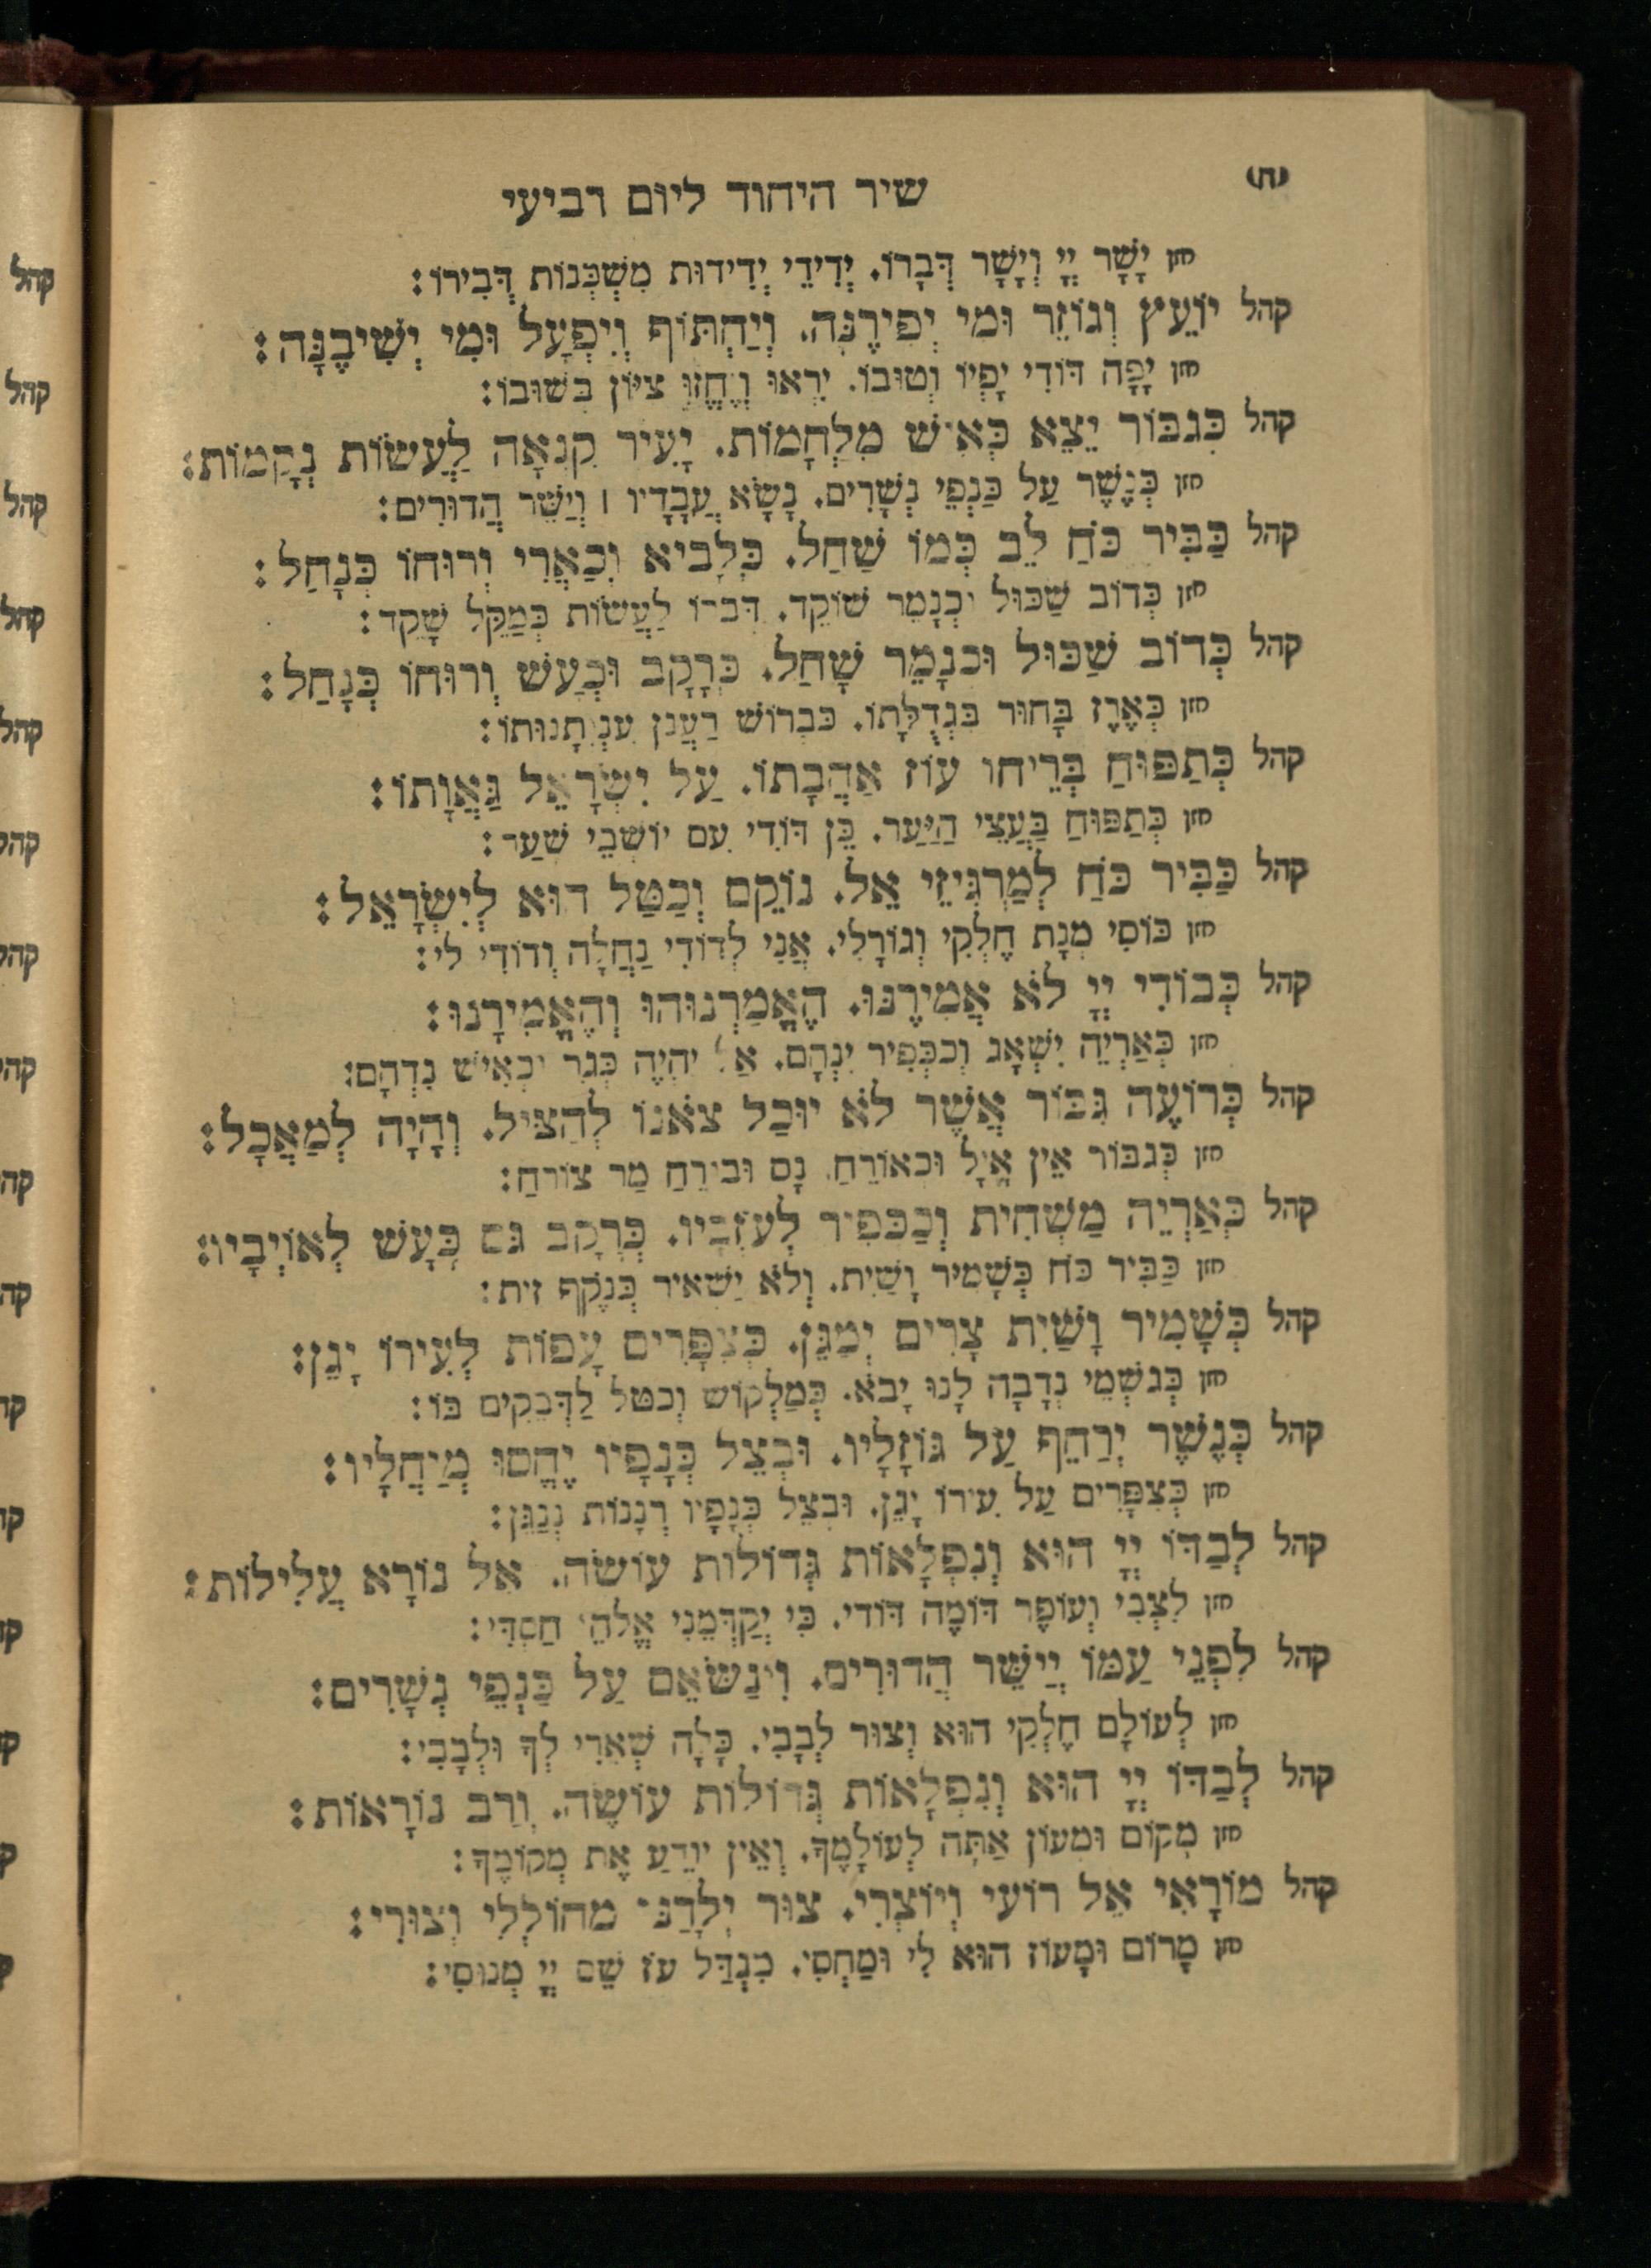 (ח)
שיר היחוד ליום רביעי
חזן יָשָׁר יְיָ וְיָשָׁר דְּבָרוֹ. יְדִידֵי יְדִידוּת מִשְׁכְּנוֹת דְּבִירוֹ:
קהל יוֹעֵץ וְגוֹזֵר וּמִי יְפִירֶנָּה. וְיַחְתּוֹף וְיִפְעָל וּמִי יְשִׁיבֶנָּה:
חזן יָפֶה דּוֹדִי יָפְיוֹ וְטוּבוֹ. יִרְאוּ וְיֶחֱזוּ צִיּוֹן בְּשׁוּבוֹ:
קהל כְּגִבּוֹר יֵצֵא כְּאִישׁ מִלְחָמוֹת. יָעִיר קִנְאָה לַעֲשׂוֹת נְקָמוֹת:
חזן כְּנֶשֶׁר עַל כַּנְפֵי נְשָׁרִים. נָשָׂא עֲבָדָיו ׀ וְיַשֵּׁר הֲדוּרִים:
קהל כַּבִּיר כֹּחַ לֵב כְּמוֹ שַׁחַל. כְּלָבִיא וְכַאֲרִי וְרוּחוֹ כְּנָחַל:
חזן כְּדוֹב שַׁכּוּל וּכְנָמֵר שׁוֹקֵד. דְּבָרוֹ לַעֲשׂוֹת כְּמַקֵּל שָׁקֵד:
קהל כְּדוֹב שַׁכּוּל וּכְנָמֵר שָׁחַל. כְּרָקָב וּכְעָשׁ וְרוּחוֹ כְּנָחַל:
חזן כְּאֶרֶז בָּחוּר בִּגְדֻלָּתוֹ. כִּבְרוֹשׁ רַעֲנָן עַנְתָנוּתוֹ:
קהל כְּתַפּוּחַ בְּרֵיחוֹ עוֹז אַהֲבָתוֹ. עַל יִשְׂרָאֵל גַּאֲוָתוֹ:
חזן כְּתַפּוּחַ בַּעֲצֵי הַיַּעַר. כֵּן דּוֹדִי עִם יוֹשְׁבֵי שַׁעַר:
קהל כַּבִּיר כֹּחַ לְמַרְגִּיזֵי אֵל. נוֹקֵם וְכַטַּל הוּא לְיִשְׂרָאֵל:
חזן כּוֹסִי מְנָת חֶלְקִי וְגוֹרָלִי. אֲנִי לְדוֹדִי נַחֲלָה וְדוֹדִי לִי:
קהל כְּבוֹדִי יְיָ לֹא אֲמִירֶנּוּ. הֶאֱמַרְנוּהוּ וְהֶאֱמִירָנוּ:
חזן כְּאַרְיֵה יִשְׁאָג וְכִכְּפִיר יִנְהָם. אַל יִהְיֶה כְּגֵר וּכְאִישׁ נִדְהָם:
קהל כְּרוֹעֶה גִּבּוֹר אֲשֶׁר לֹא יוּכַל צֹאנוֹ לְהַצִּיל. וְהָיָה לְמַאֲכָל:
חזן כְּגִבּוֹר אֵין אֱיָל וּכְאוֹרֵחַ. נָם וּבוֹרֵחַ מַר צוֹרֵחַ:
קהל כְּאַרְיֵה מַשְׁחִית וְכַכְּפִיר לְעֹזְבָיו. כְּרָקָב גַּם כָּעָשׁ לְאוֹיְבָיו:
חזן כַּבִּיר כֹּחַ כְּשָׁמִיר וָשַׁיִת. וְלֹא יַשְׁאִיר כְּנֹקֶף זַיִת:
קהל כְּשָׁמִיר וָשַׁיִת צָרִים יְמַגֵּן. כְּצִפָּרִים עָפוֹת לְעִירוֹ יָגֵן:
חזן כְּגִשְׁמֵי נְדָבָה לָנוּ יָבֹא. כְּמַלְקוֹשׁ וְכַטַּל לַדְּבֵקִים בּוֹ:
קהל כְּנֶשֶׁר יְרַחֵף עַל גּוֹזָלָיו. וּבְצֵל כְּנָפָיו יֶחֱסוּ מְיַחֲלָיו:
חזן כְּצִפָּרִים עַל עִירוֹ יָגֵן. וּבְצֵל כְּנָפָיו רְנָנוֹת נְנַגֵּן:
קהל לְבַדּוֹ יְיָ הוּא וְנִפְלָאוֹת גְּדוֹלוֹת עוֹשֶׂה. אֵל נוֹרָא עֲלִילוֹת:
חזן לִצְבִי וְעוֹפֶר דּוֹמֶה דּוֹדִי. כִּי יְקַדְּמֵנִי אֱלֹהֵי חַסְדִּי:
קהל לִפְנֵי עַמּוֹ יְיַשֵּׁר הֲדוּרִים. וִינַשְּׂאֵם עַל כַּנְפֵי נְשָׁרִים:
חזן לְעוֹלָם חֶלְקִי הוּא וְצוּר לְבָבִי. כָּלָה שְׁאֵרִי לְךָ וּלְבָבִי:
קהל לְבַדּוֹ יְיָ הוּא וְנִפְלָאוֹת גְּדוֹלוֹת עוֹשֶׂה. וְרַב נוֹרָאוֹת:
חזן מְקוֹם וּמְעוֹן אַתָּה לְעוֹלָמֶךָ. וְאֵין יוֹדֵעַ אֶת מְקוֹמֶךָ:
קהל מוֹרָאִי אֵל רוֹעִי וְיוֹצְרִי. צוּר יְלָדַנִי מְחוֹלְלִי וְצוּרִי:
חזן מָרוֹם וּמָעוֹז הוּא לִי וּמַחְסִי. מִגְדַּל עֹז שֵׁם יְיָ מְנוּסִי:
קהל
קהל
קהל
קהל
קהל